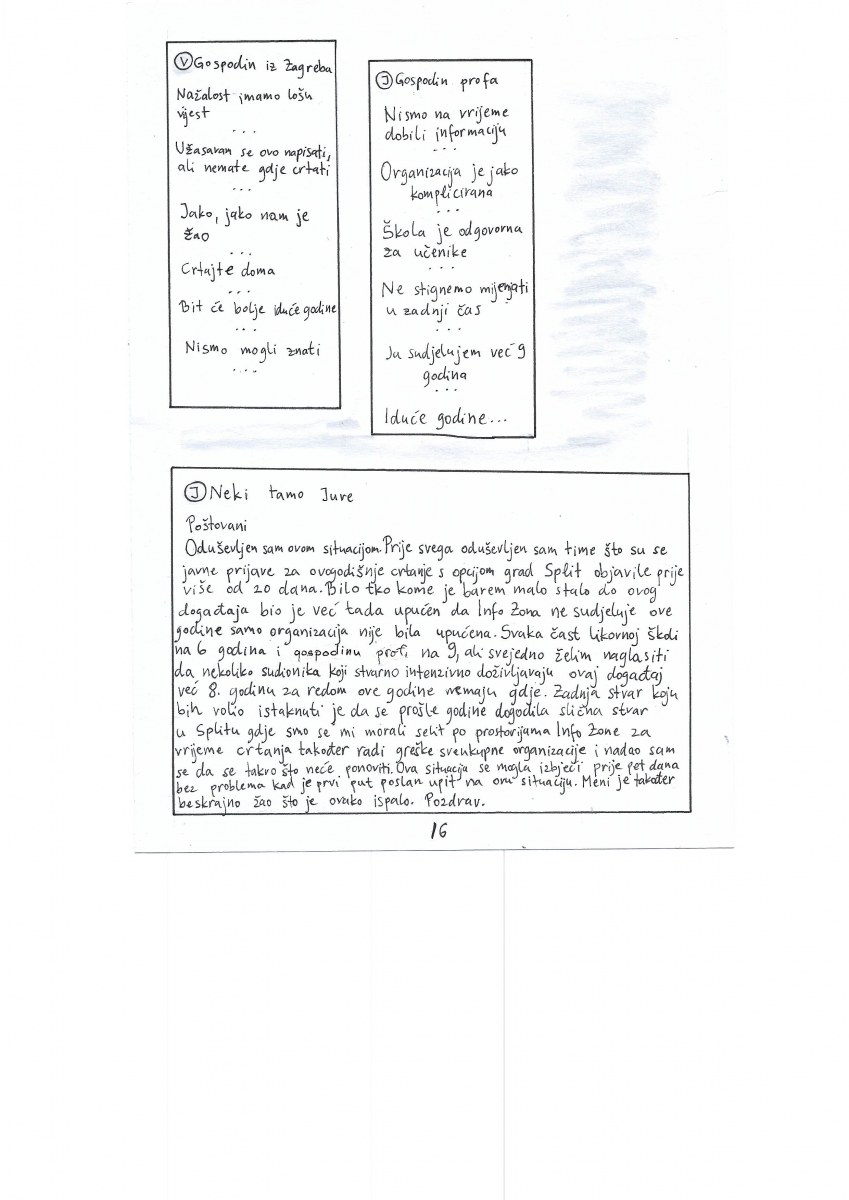 V Gospodin iz Zagreba
Nažalost imamo lošu
vijest
...
Užasavam se ovo napisati,
ali nemate gdje crtati
...
Jako, jako nam je
žao
...
Crtajte doma
...
Bit će bolje iduće godine
...
Nismo mogli znati
....
J Gospodin profa
Nismo na vrijeme
dobili informaciju
...
Organizacija je jako
komplicirana
...
Škola je odgovorna
za učenike
...
Ne stignemo mijenjati
u zadnji čas
...
Ja sudjelujem već 9
godina
...
Iduće godine...
J Neki tamo Jure
Poštovani
Oduševljen sam ovom situacijom. Prije svega oduševljen sam time što su se
javne prijave za ovogodišnje crtanje s opcijom grad Split objavile prije
više od 20 dana. Bilo tko kome je barem malo stalo do ovog
događaja bio je već tada upućen da Info Zona ne sudjeluje ove
godine samo organizacija nije bila upućena. Svaka čast likovnoj školi
na 6 godina i gospodinu profi na 9, ali svejedno želim naglasiti
da nekoliko sudionika koji stvarno intenzivno doživljavaju ovaj događaj
već 8. godinu za redom ove godine nemaju gdje. Zadnja stvar koju
bih volio istaknuti je da se prošle godine dogodila slična stvar
u Splitu gdje smo se mi morali selit po prostorijama Info Zone za
vrijeme crtanja također radi greške sveukupne organizacije i nadao sam
se da se takvo što neće ponoviti. Ova situacija se mogla izbjeći prije pet dana
bez problema kad je prvi put poslan upit na ovu situaciju. Meni je također
beskrajno žao što je ovako ispalo. Pozdrav.
16